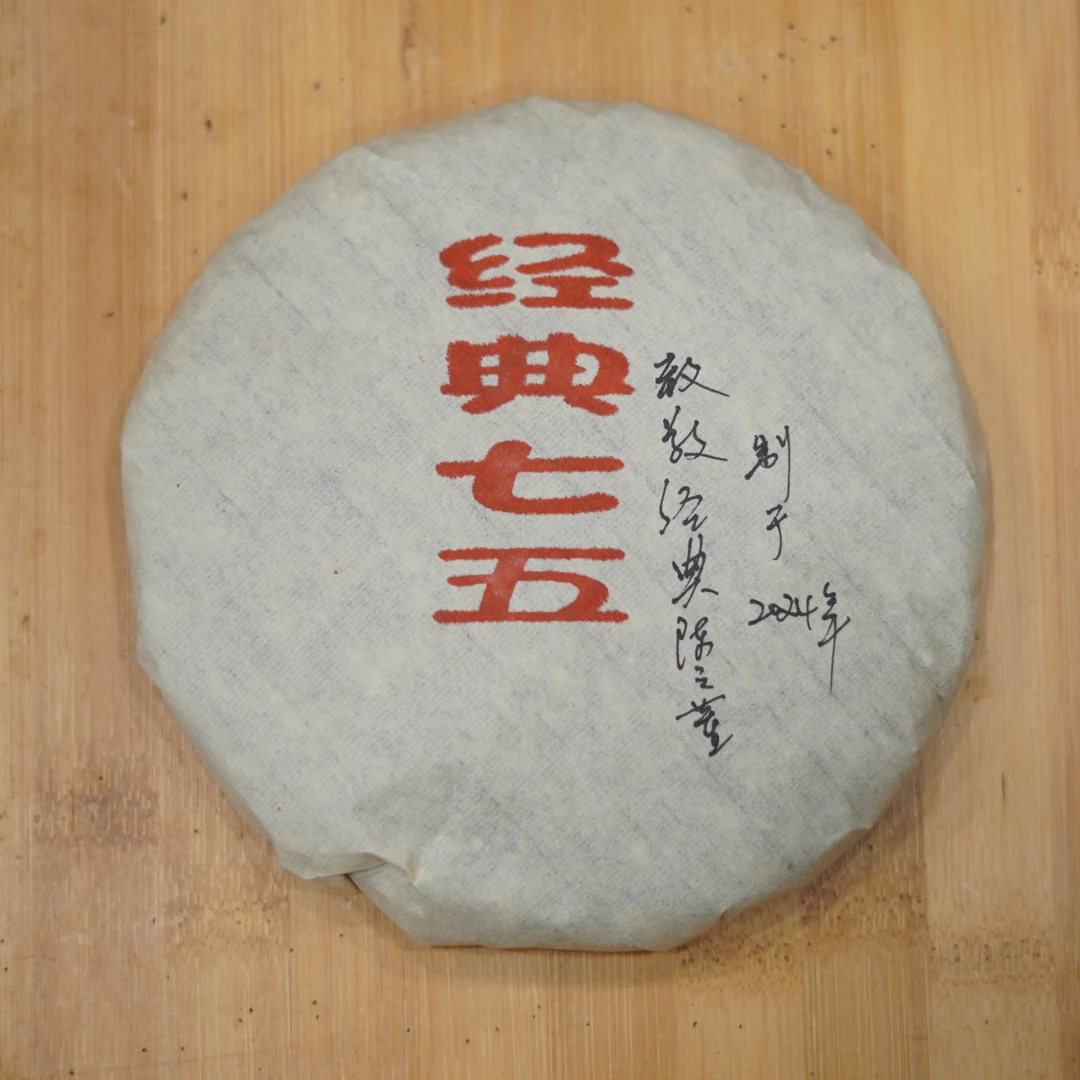 经典七五
致敬经典陈
制于2024年